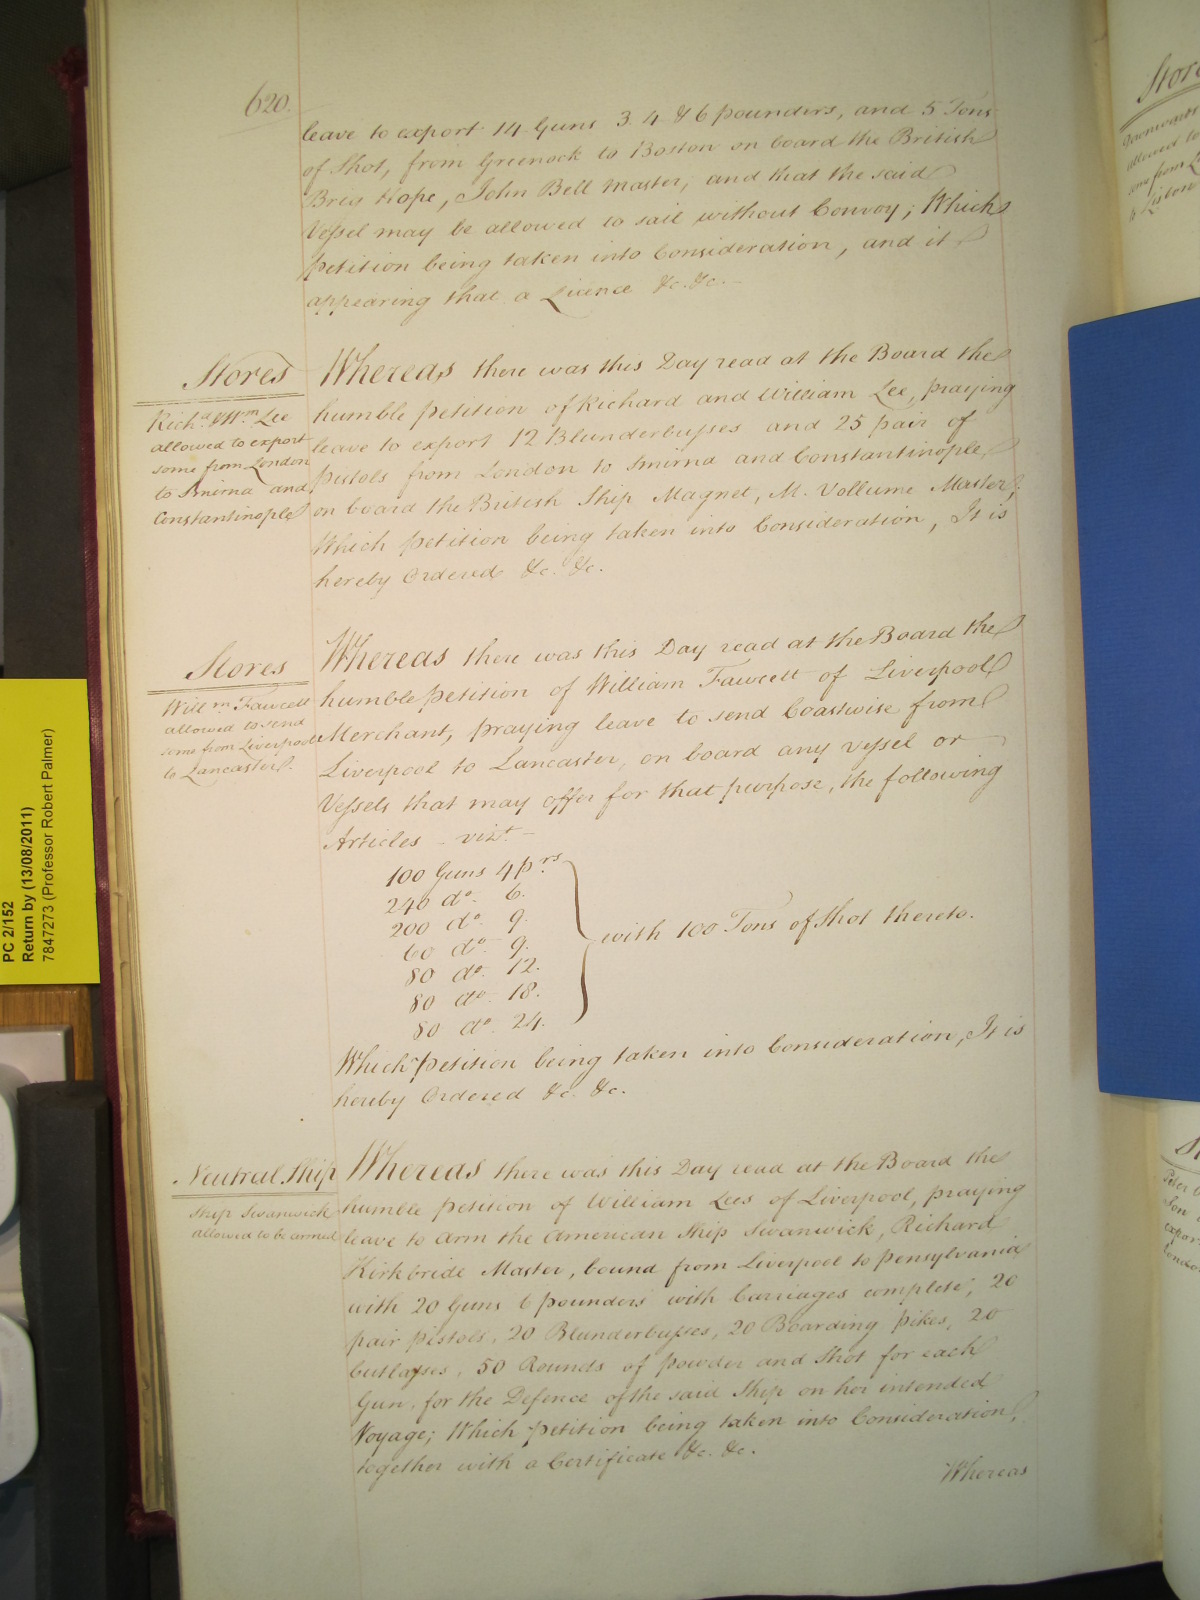 620.
leave to export 14 Guns 3. 4 & 6 pounders, and 5 Tons
of Shot, from Greenock to Boston on board the British
Brig Hope, John Bell Master, and that the said
Vessel may be allowed to sail without Convoy; Which
Petition being taken into Consideration, and it
appearing that a Licence &c. &c. —
Stores
Richd. & Wm. Lee
allowed to export
some from London
to Smirna and
Constantinople
Whereas there was this Day read at the Board the
humble petition of Richard and William Lee, praying
leave to export 12 Blunderbusses and 25 pair of
Pistols from London to Smirna and Constantinople
on board the British Ship Magnet, M. Vollume Master;
Which petition being taken into Consideration, It is
hereby Ordered &c. &c.
Stores
Willm. Fawcett
allowed to send
some from Liverpool
to Lancaster.
Whereas there was this Day read at the Board the
humble petition of William Fawcett of Liverpool
Merchant, praying leave to send Coastwise from
Liverpool to Lancaster, on board any Vessel or
Vessels that may offer for that purpose, the following
Articles – vizt. –
100 Guns 4 prs.
240 do. 6.
200 do. 9.
60 do. 9.
80 do. 12.
80 do. 18.
80 do. 24.
with 100 Tons of Shot thereto.
Which Petition being taken into Consideration, It is
hereby Ordered &c. &c.
Neutral Ship
Ship Swanwick
allowed to be armed
Whereas there was this Day read at the Board the
humble Petition of William Lees of Liverpool, praying
leave to arm the American Ship Swanwick, Richard
Kirkbride Master, bound from Liverpool to Pensylvania
with 20 Guns 6 pounders with Carriages complete, 20
pair pistols, 20 Blunderbusses, 20 Boarding Pikes, 20
Cutlasses, 50 Rounds of powder and Shot for each
Gun, for the Defence of the said Ship on her intended
Voyage; Which petition being taken into Consideration,
together with a Certificate &c. &c.
Whereas
PC 2/152
Return by (13/08/2011)
7847273 (Professor Robert Palmer)
allowed to
some from
to Lisbon